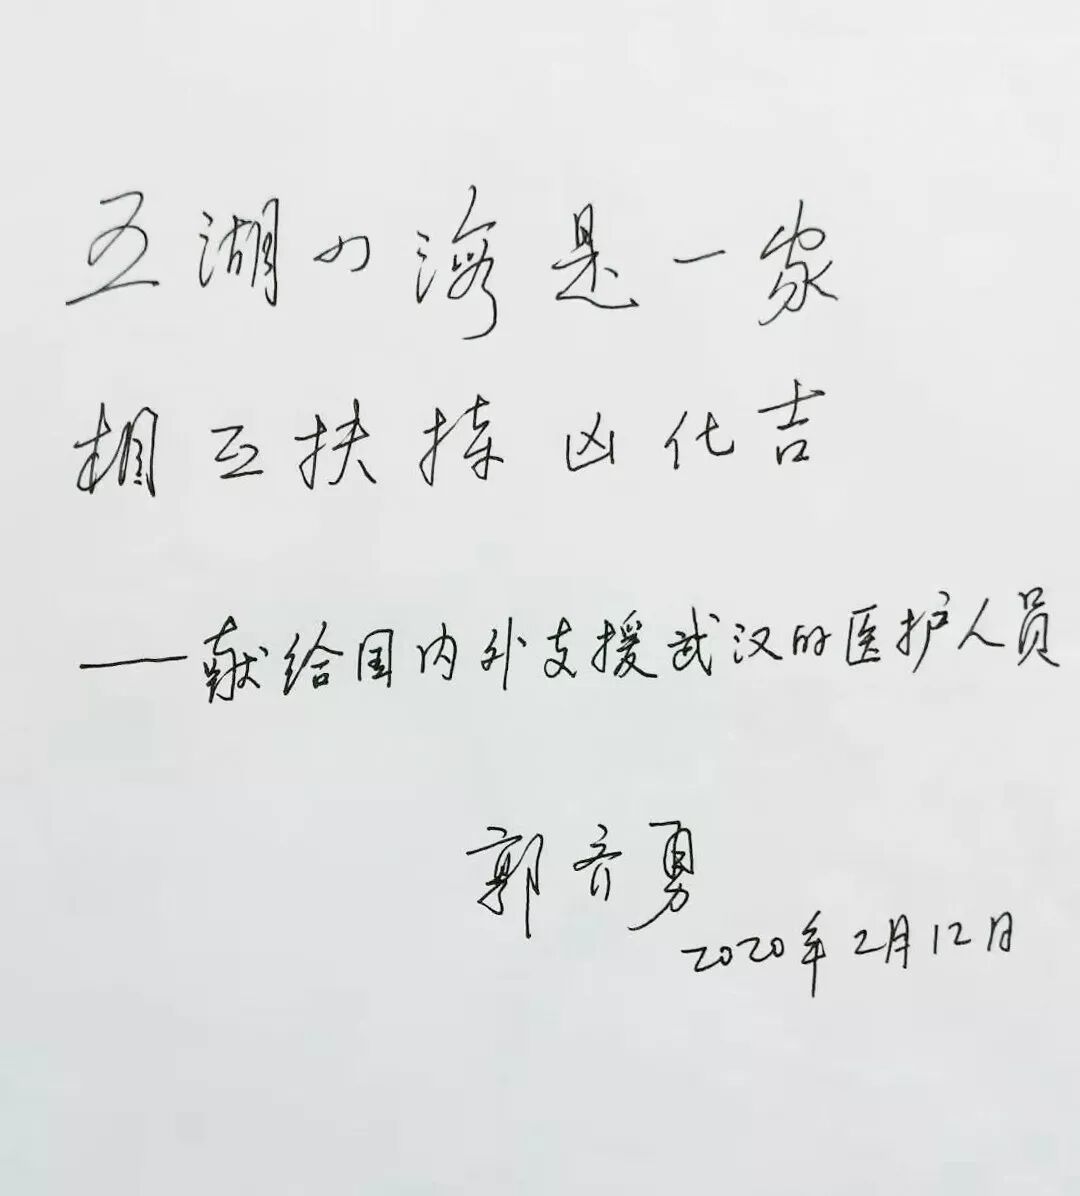 五湖四海是一家
相互扶持凶化吉
——献给国内外支援武汉的医护人员
郭齐勇
2020年2月12日